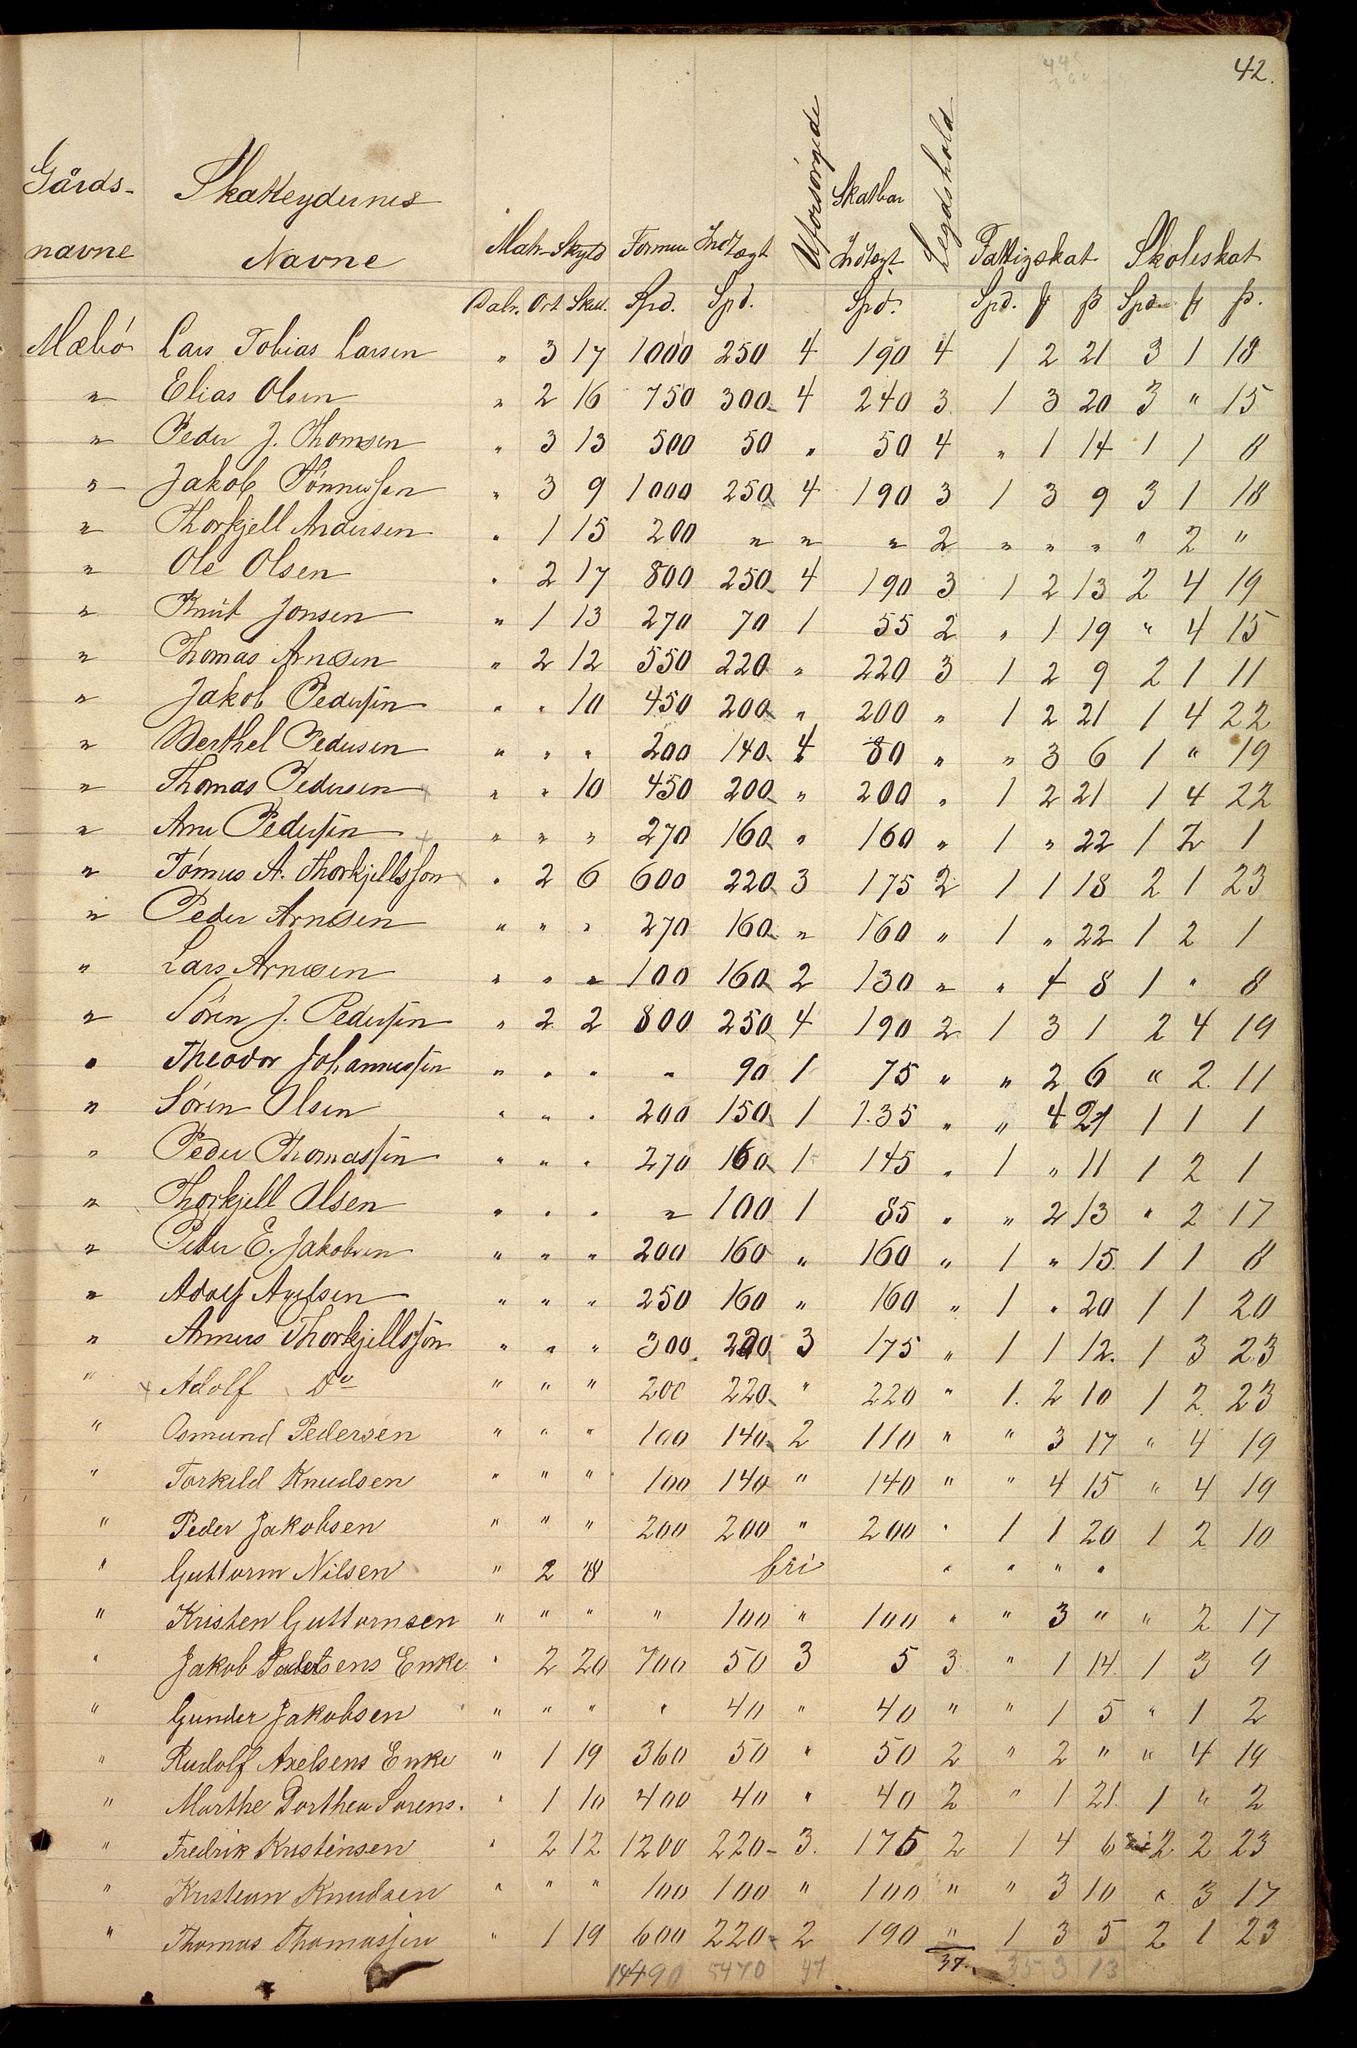 42.
Gårds-navne Skatteydernes Navne Matr-Skyld Formue Indtægt Uforsørgede Skatbar Indtægt. Legdshold Fattigskat Skoleskat
Dalr. Ort Skill. Spd. Spd. Spd. Spd. ß Spd. ß.
Mæbø Lars Tobias Larsen " 3 17 1000 250 4 190 4 1 2 21 3 1 18
" Elias Olsen " 2 16 750 300 4 240 3 1 3 20 3 " 15
" Peder J. Thomsen " 3 13 500 50 " 50 4 " 1 14 1 1 8
" Jakob Tönnessen " 3 9 1000 250 4 190 3 1 3 9 3 1 18
" Thorkjell Andersen " 1 15 200 " " " 2 " " " " 2 "
" Ole Olsen " 2 17 800 250 4 190 3 1 2 13 2 4 19
" Knut Jonsen " 1 13 270 70 1 55 2 " 1 19 " 4 15
" Thomas Arnesen " 2 12 550 220 " 220 3 1 2 9 2 1 11
" Jakob Pedersen " " 10 450 200 " 200 " 1 2 21 1 4 22
" Berthel Pedersen " " " 200 140 4 80 " " 3 6 1 " 19
" Thomas Pedersen " " 10 450 200 " 200 " 1 2 21 1 4 22
" Arne Pedersen " " " 270 160 " 160 " 1 " 22 1 2 1
" Tönnes A. Thorkjellsson " 2 6 600 220 3 175 2 1 1 18 2 1 23
" Peder Arnesen " " " 270 160 " 160 " 1 " 22 1 2 1
" Lars Arnesen " " " 100 160 2 130 " " 4 8 1 " 8
" Sören J. Pedersen " 2 2 800 250 4 190 2 1 3 1 2 4 19
" Theodor Johannessen " " " " 90 1 75 " " 2 6 " 2 11
" Sören Olsen " " " 200 150 1 135 " " 4 21 1 1 1
" Peder Thomassen " " " 270 160 1 145 " 1 " 11 1 2 1
" Thorkjell Olsen " " " " 100 1 85 " " 2 13 " 2 17
" Peter E. Jakobsen " " " 200 160 " 160 " 1 " 15 1 1 8
" Adolf Axelsen " " " 250 160 " 160 " 1 " 20 1 1 20
" Annus Thorkjellssön " " " 300 220 3 175 " 1 1 12. 1 3 23
" Adolf Do " " " 200 220 " 220 " 1. 2 10 1 2 23
" Osmund Pedersen " " " 100 140 2 110 " " 3 17 " 4 19
" Torkild Knudsen " " " 100 140 " 140 " " 4 15 " 4 19
" Peder Jakobsen " " " 200 200 " 200 " 1 1 20 1 2 10
" Guttorm Nilsen " 2 18 fri " " " "
" Kristen Guttormsen " " " " 100 " 100 " " 3 " " 2 17
" Jakob Pedersens Enke " 2 20 700 50 3 5 3 " 1 14 1 3 9
" Gunder Jakobsen " " " " 40 " 40 " " 1 5 " 1 2
" Rudolf Axelsens Enke " 1 19 360 50 " 50 2 " 2 " " 4 19
" Marthe Dorthea Sørens. " 1 10 400 40 " 40 2 " 1 21 1 " 2
" Fredrik Kristensen " 2 12 1200 220 3. 175 2 1 4 6 2 2 23
" Kristian Knudsen " " " 100 100 " 100 " " 3 10 " 3 17
" Thomas Thomassen " 1 19 600 220 2 190 " 1 3 5 2 1 23
14490 5470 47 37 35 3 13